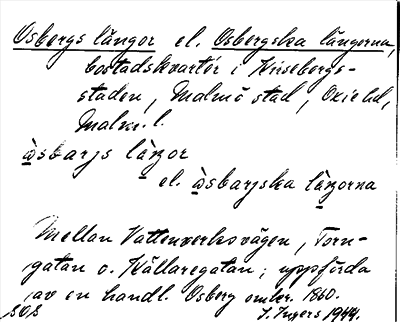 Osbergs längor el. Osbergska längorna,
bostadskvarter i Kirsebergs-
staden, Malmö stad, Oxie hd,
Malm. l.
ɷ̀sbarjs lä̀ŋor
el. ɷ̀sbarjska lä̀ŋorna
Mellan Vattenverksvägen, Torn-
gatan o. Källaregatan; uppförda
av en handl. Osberg omkr. 1860.
SOS I. Ingers 1944.